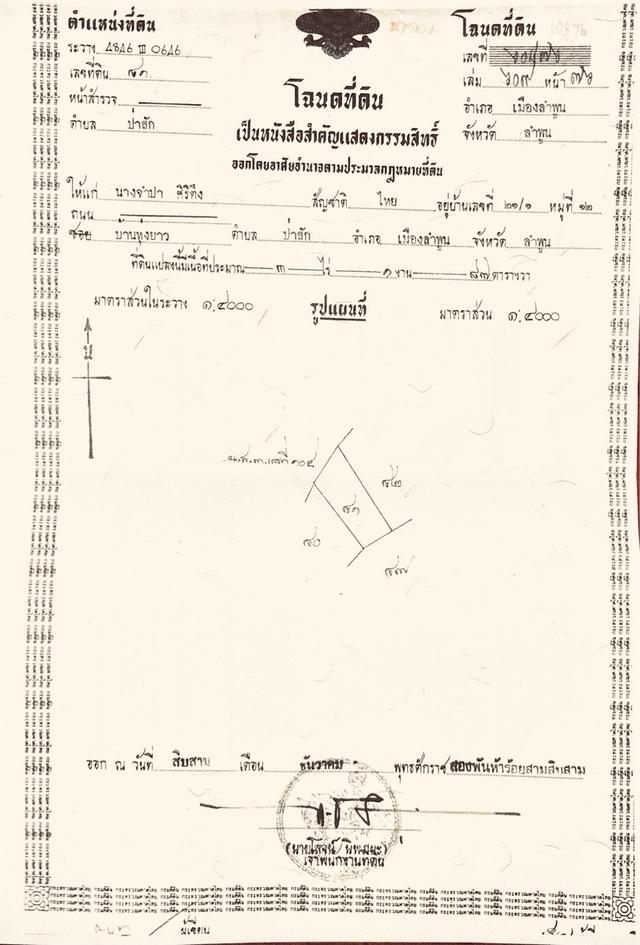 ตำแหน่งที่ดิน
ระวาง 4846 III 0646
เลขที่ดิน ๘๑
หน้าสำรวจ
ตำบล ป่าสัก
โฉนดที่ดิน
เลขที่
เล่ม ๖๐๙ หน้า ๗๖
อำเภอ เมืองลำพูน
จังหวัด ลำพูน
โฉนดที่ดิน
เป็นหนังสือสำคัญแสดงกรรมสิทธิ์
ออกโดยอาศัยอำนาจตามประมวลกฎหมายที่ดิน
ให้แก่ นางจำปา ศิริตึง สัญชาติ ไทย อยู่บ้านเลขที่ ๒๑/๑ หมู่ที่ ๑๒
ถนน
ซอย บ้านทุ่งยาว ตำบล ป่าสัก อำเภอ เมืองลำพูน จังหวัด ลำพูน
ที่ดินแปลงนี้มีเนื้อที่ประมาณ ๓ ไร่ ๑ งาน ๘๗ ตารางวา
มาตราส่วนในระวาง ๑:๔๐๐๐ รูปแผนที่ มาตราส่วน ๑:๔๐๐๐
น
น.ส.๓. เลขที่ ๑๐๕
๘๒
๘๑
๘๐
๘๗
ออก ณ วันที่ สิบสาม เดือน ธันวาคม พุทธศักราช สองพันห้าร้อยสามสิบสาม
เจ้าพนักงานที่ดิน
ผู้เขียน